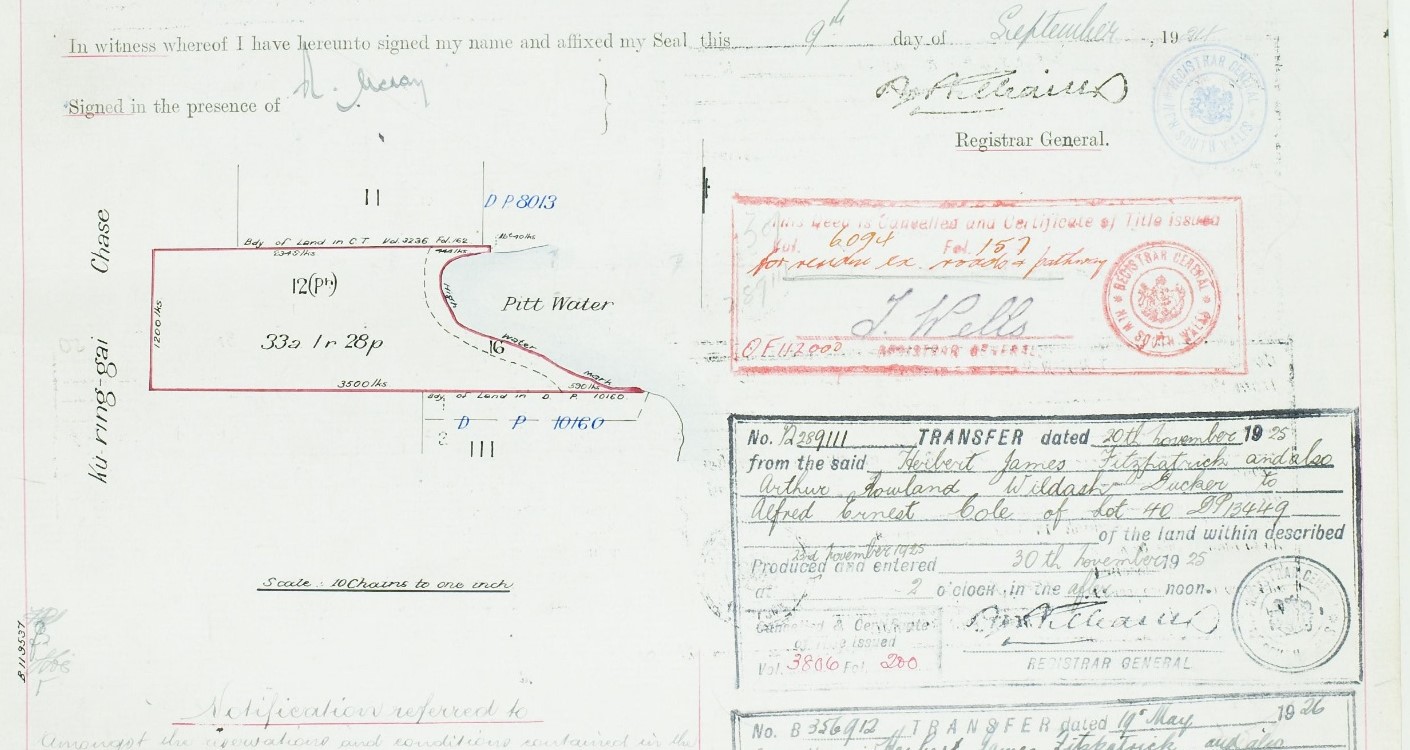 In witness whereof I have hereunto signed my name and affixed my Seal this 9th day of September, 19
Signed in the presence of
Registrar General.
REGISTRAR GENERAL
Ku-ring-gai Chase
11
D P 8013
Bdy of Land in C T Vol. 3236 Fol. 162
12 (Ph)
Pitt Water
High Water mark
1200 lks
33a 1r 28p
16
3500 lks
590 lks
Bdy. of Land in D. P. 10160
D P 10160
III
Scale : 10 Chains to one inch
B 119537
Notification referred to
Amongst the reservations and conditions contained in the
This Deed is Cancelled and Certificate of Title issued
Vol. 6094 Fol. 157
for residue ex. roads & pathway
J. Wells
REGISTRAR GENERAL
REGISTRAR GENERAL NEW SOUTH WALES
No. B289111 TRANSFER dated 20th November 1925
from the said Herbert James Fitzpatrick and also
Arthur Rowland Wildash Tucker to
Alfred Ernest Cole of Lot 40 DP13449
of the land within described
23rd November 1925
Produced and entered 30th November 1925
at 2 o'clock in the after noon.
Cancelled & Certificate
of Title issued
Vol. 3806 Fol. 200
REGISTRAR GENERAL
No. B 356912 TRANSFER dated 19th May 1926
Herbert James Fitzpatrick and also